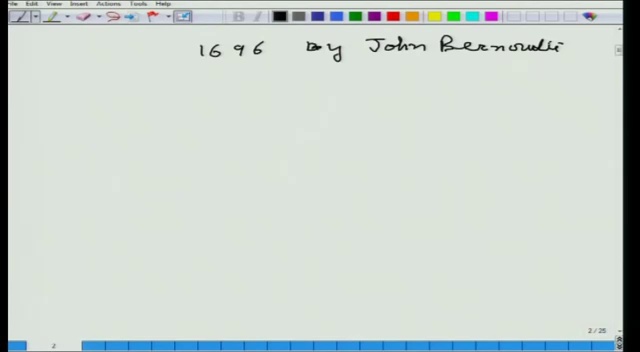 File Edit View Insert Actions Tools Help
1696 by John Bernoulli
2 / 25
2